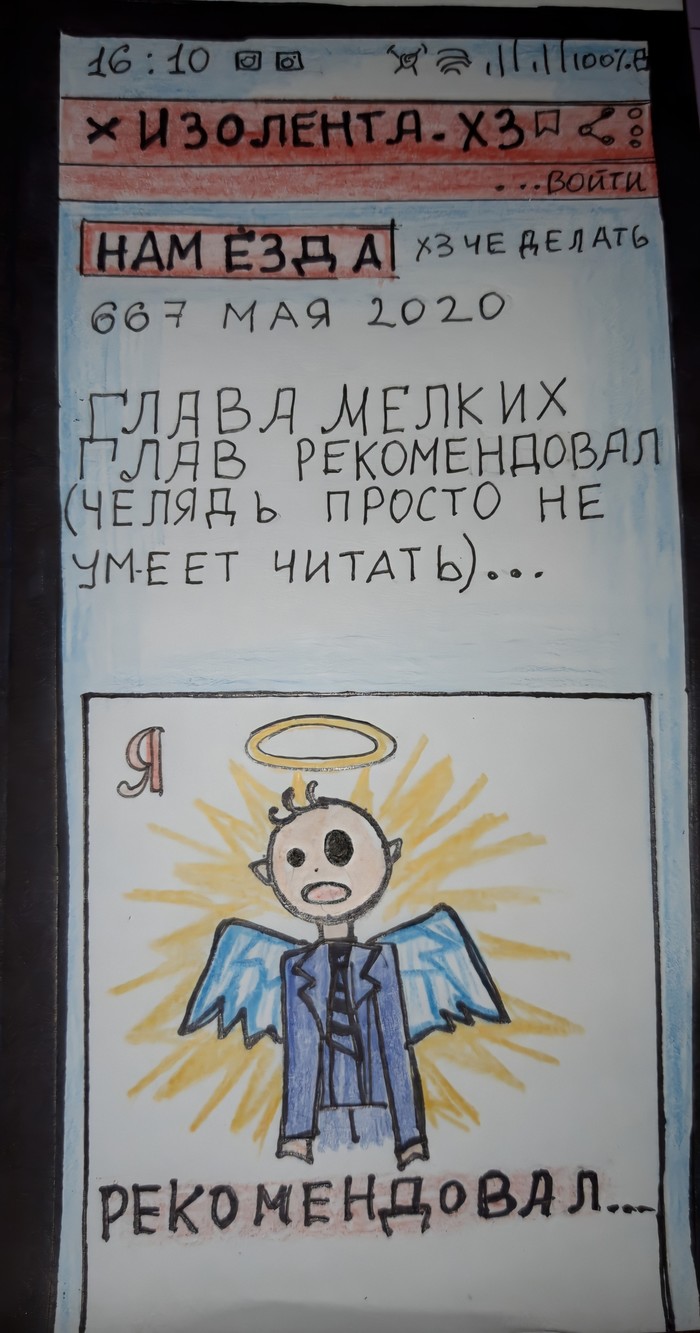 16:10 100%
× ИЗОЛЕНТА.ХЗ
...ВОЙТИ
НАМ ЁЗДА ХЗ ЧЕ ДЕЛАТЬ
667 МАЯ 2020
ГЛАВА МЕЛКИХ
ГЛАВ РЕКОМЕНДОВАЛ
(ЧЕЛЯДЬ ПРОСТО НЕ
УМЕЕТ ЧИТАТЬ)...
Я
РЕКОМЕНДОВАЛ...